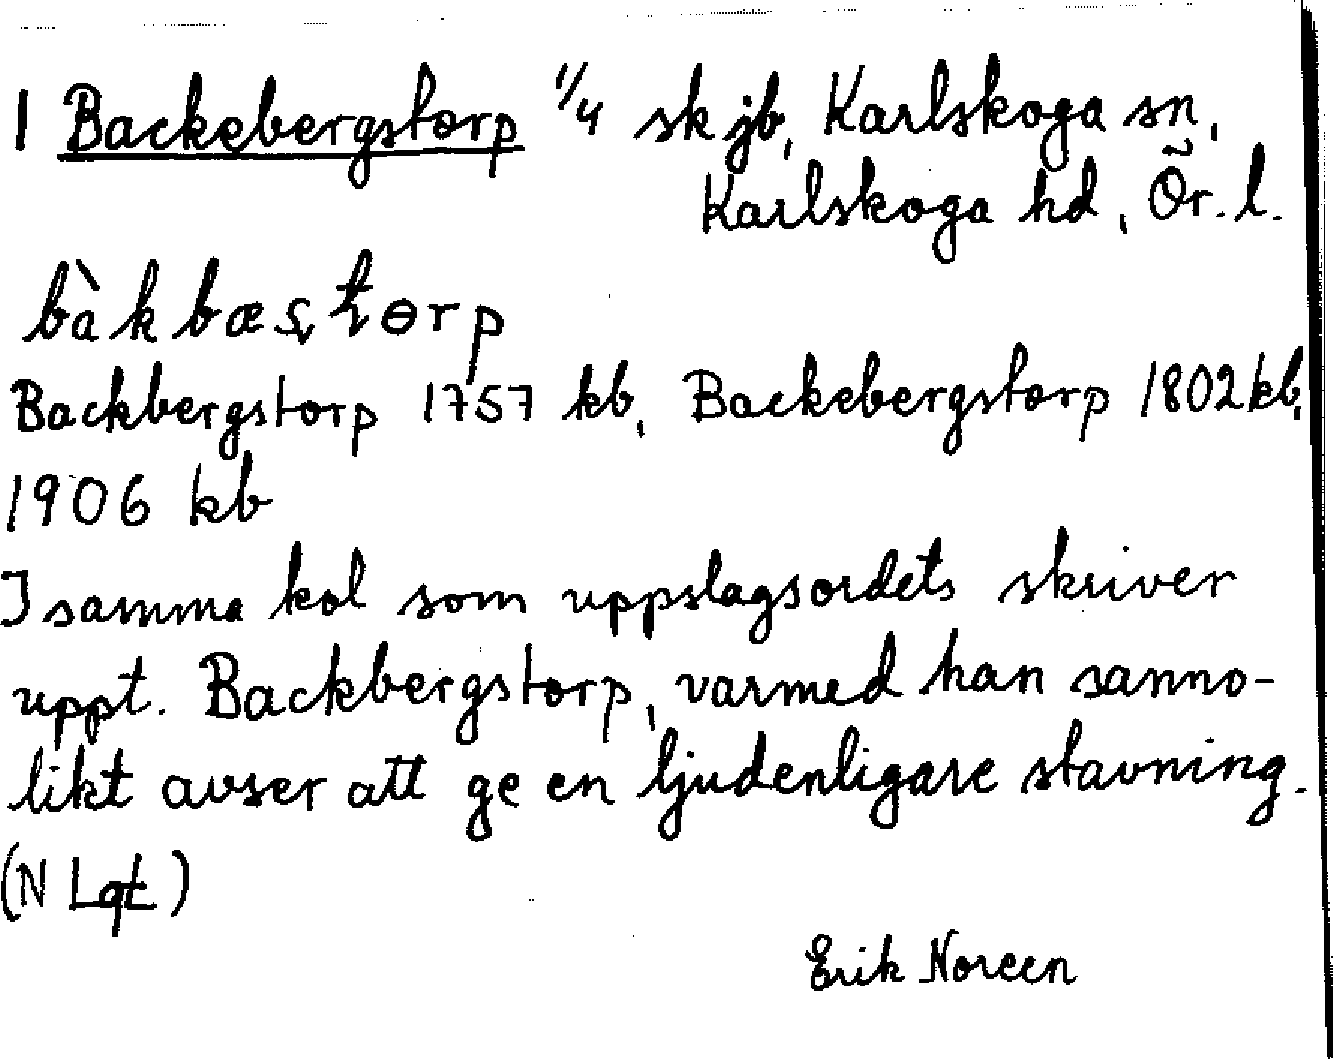 1 Backebergstorp 1/4 sk jb, Karlskoga sn,
Karlskoga hd, Ör. l.
bàkbæstɵrp
Backbergstorp 1757 kb, Backebergstorp 1802 kb,
1906 kb
I samma kol som uppslagsordets skriver
uppt. Backbergstorp, varmed han sanno-
likt avser att ge en ljudenligare stavning.
(N Lqt)
Erik Noreen